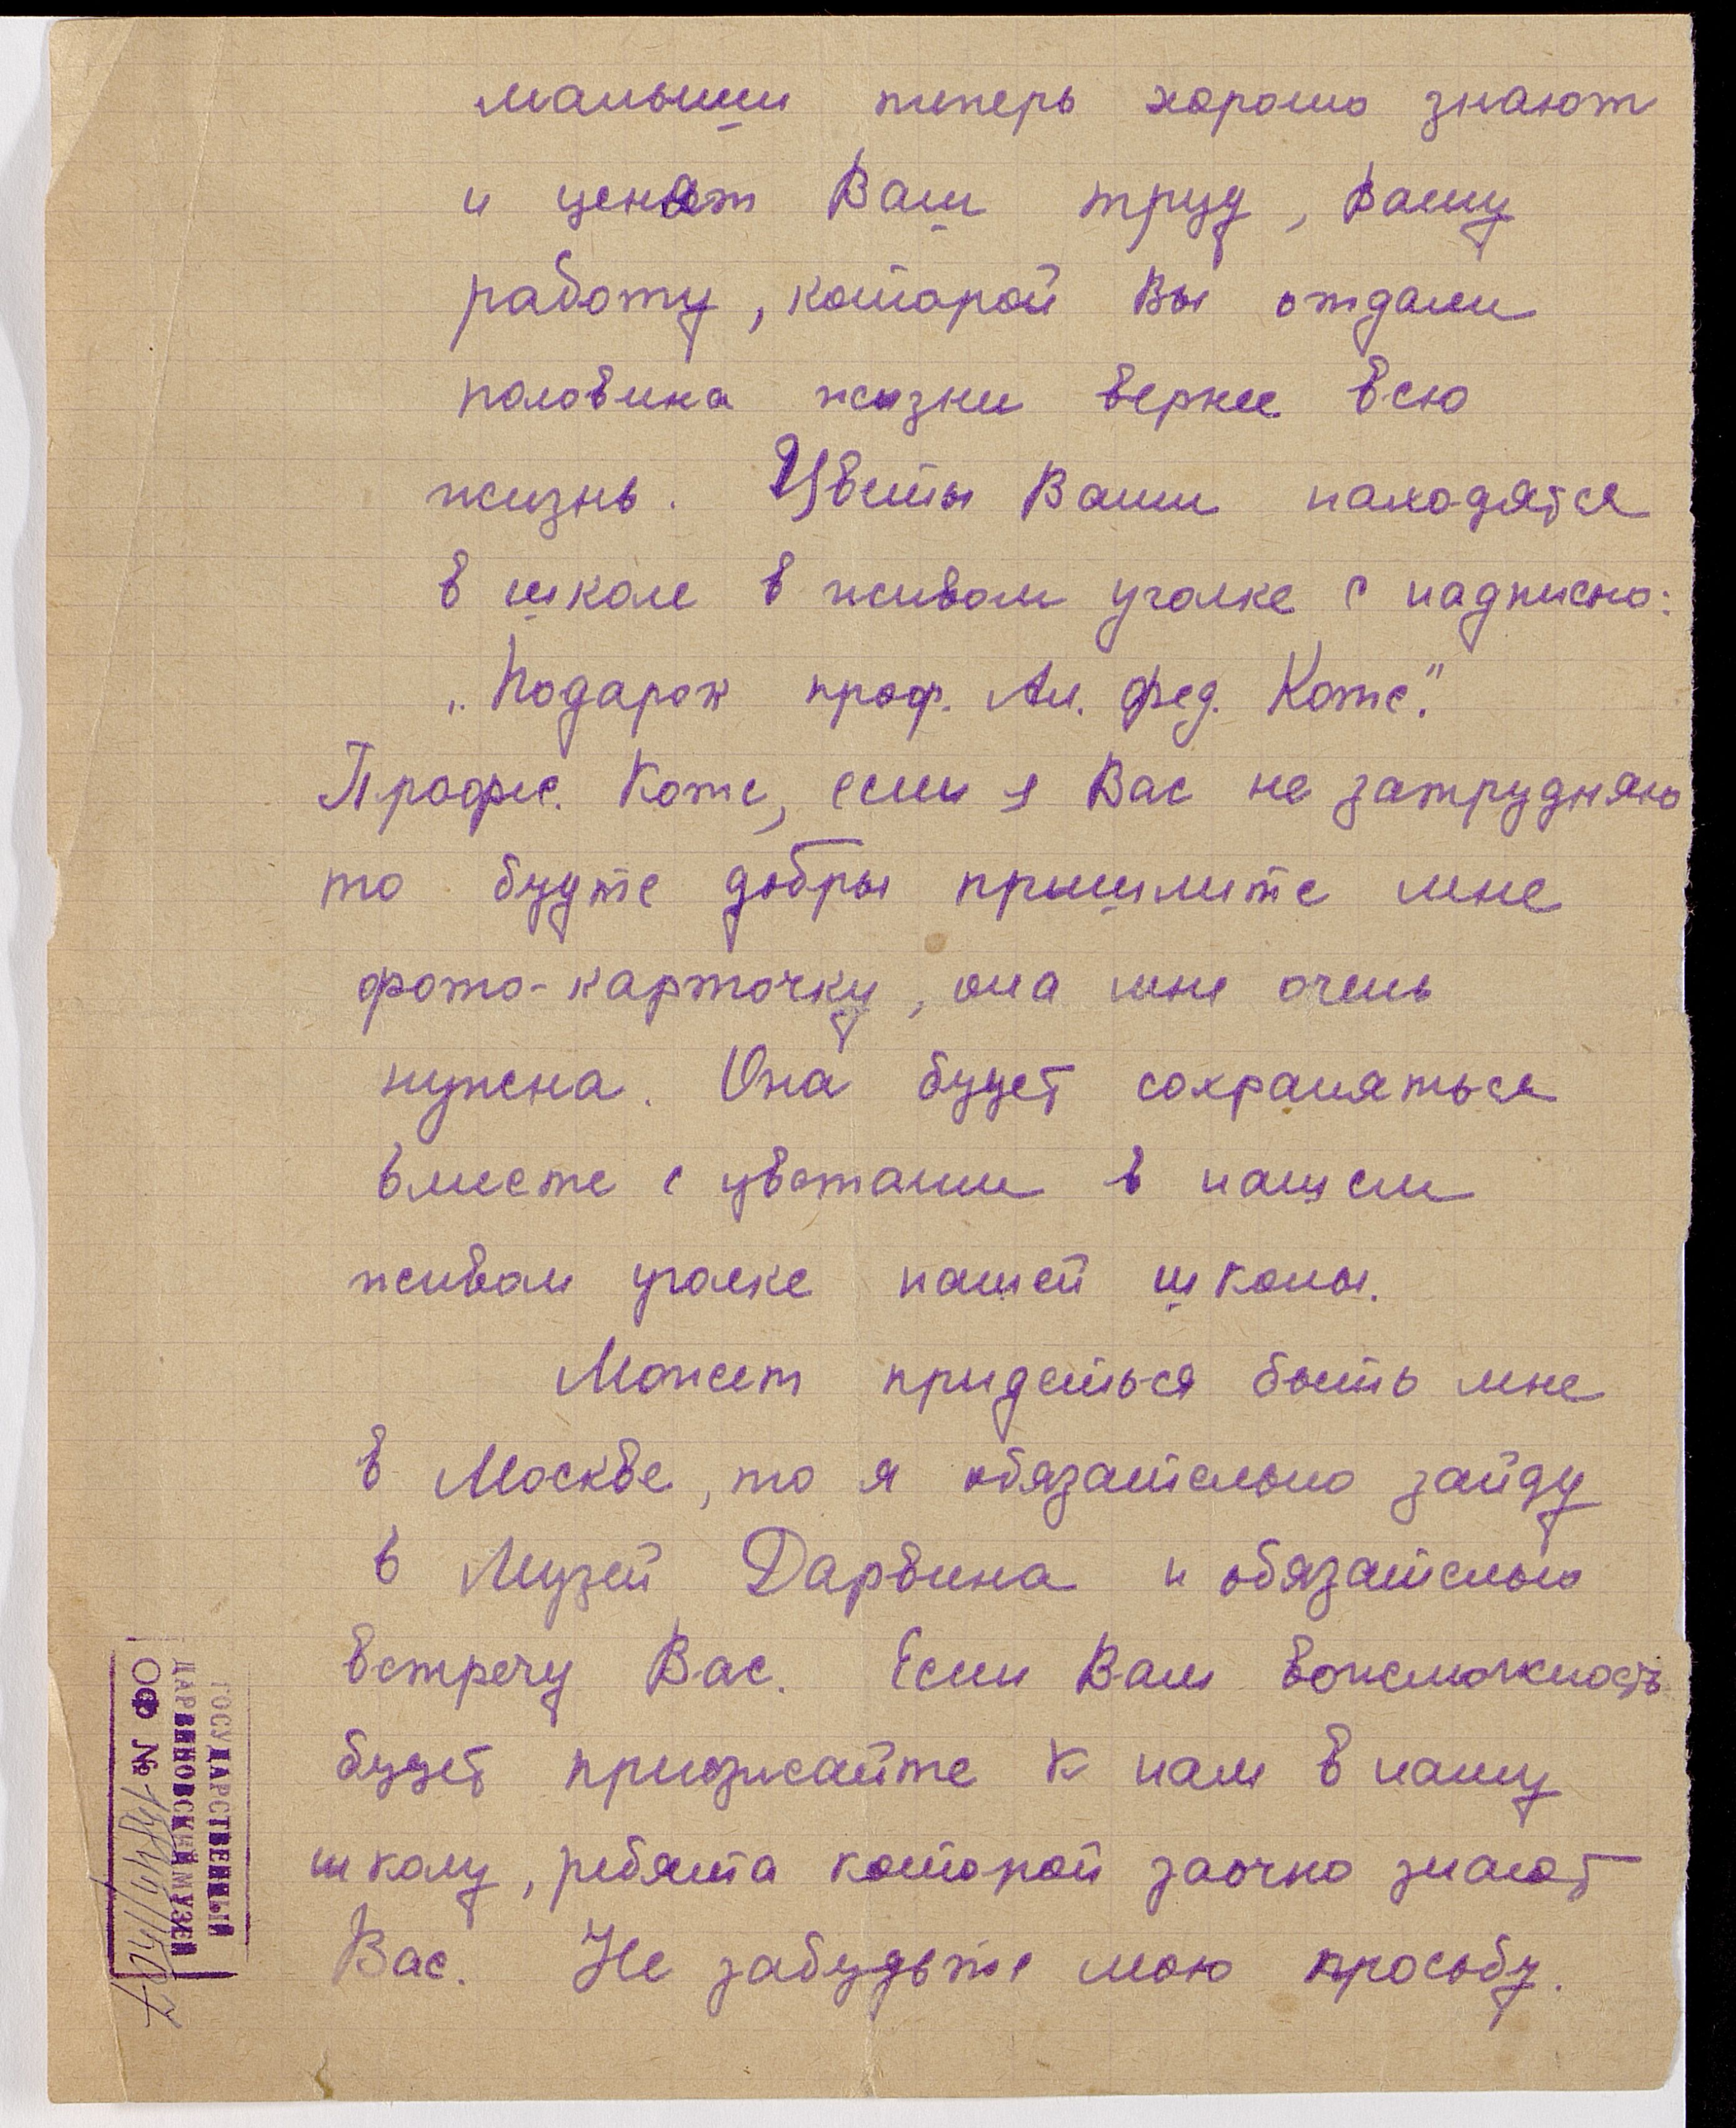 малыши теперь хорошо знают
и ценят Ваш труд, Вашу
работу, которой Вы отдали
половина жизни вернее всю
жизнь. Цветы Ваши находятся
в школе в живом уголке с надписью:
„Подарок проф. Ал. Фед. Котс."
Профес. Котс, если я Вас не затрудняю
то будте добры пришлите мне
фото-карточку, она мне очень
нужна. Она будет сохраняться
вместе с цветами в нашем
живом уголке нашей школы.
Может придеться быть мне
в Москве, то я обязательно зайду
в Музей Дарвина и обязательно
встречу Вас. Если Вам вожможность
будет приезжайте к нам в нашу
школу, ребята которой заочно знают
Вас. Не забудьте мою прособу.
ГОСУДАРСТВЕННЫЙ
ДАРВИНОВСКИЙ МУЗЕЙ
ОФ №